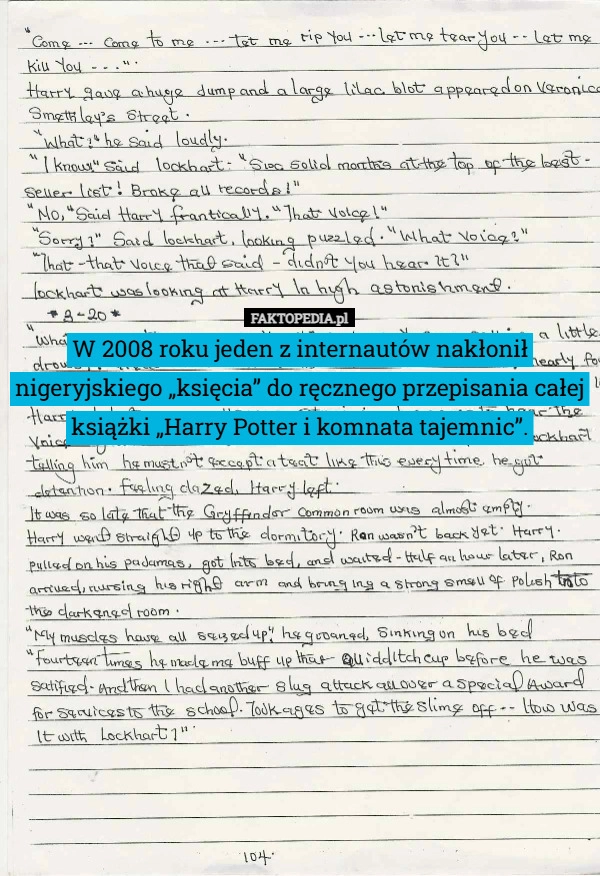 "Come --- come to me --- let me rip you --- let me tear you -- let me
kill you - - - ".
Harry gave a huge jump and a large lilac blot appeared on Veronica
Smethley's street.
"What?" he said loudly.
"I know" said lockhart. "Six solid months at the top of the best -
seller list! Broke all records!"
"No," said Harry frantically. "That voice!"
"Sorry?" Said lockhart, looking puzzled. "What voice?"
"That - that voice that said - didn't you hear it?"
lockhart was looking at Harry in high astonishment.
* 8-20 *
FAKTOPEDIA.pl
a little
W 2008 roku jeden z internautów nakłonił
nearly
nigeryjskiego „księcia” do ręcznego przepisania całej
książki „Harry Potter i komnata tajemnic”.
the
lockhart
telling him he mustn't except a teat like this every time he got
detention. feeling dazed, Harry left.
It was so late that the Gryffindor common room was almost empty.
Harry went straight up to the dormitory. Ron wasn't back yet. Harry.
pulled on his padamas, got into bed, and waited - Half an hour later, Ron
arrived, nursing his right arm and bringing a strong smell of polish into
the darkened room.
"My muscles have all seized up," he groaned, sinking on his bed
"fourteen times he made me buff up that Quidditch cup before he was
satified. And then I had another slug attack all over a special Award
for services to the school. Took ages to get the slime off -- How was
It with Lockhart?"
104.